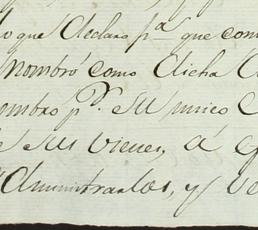 lo que declaro p.a que con
nombró como dicha
nombro p.r su unico
e sus vienes, á q
Administrarlos, y ve